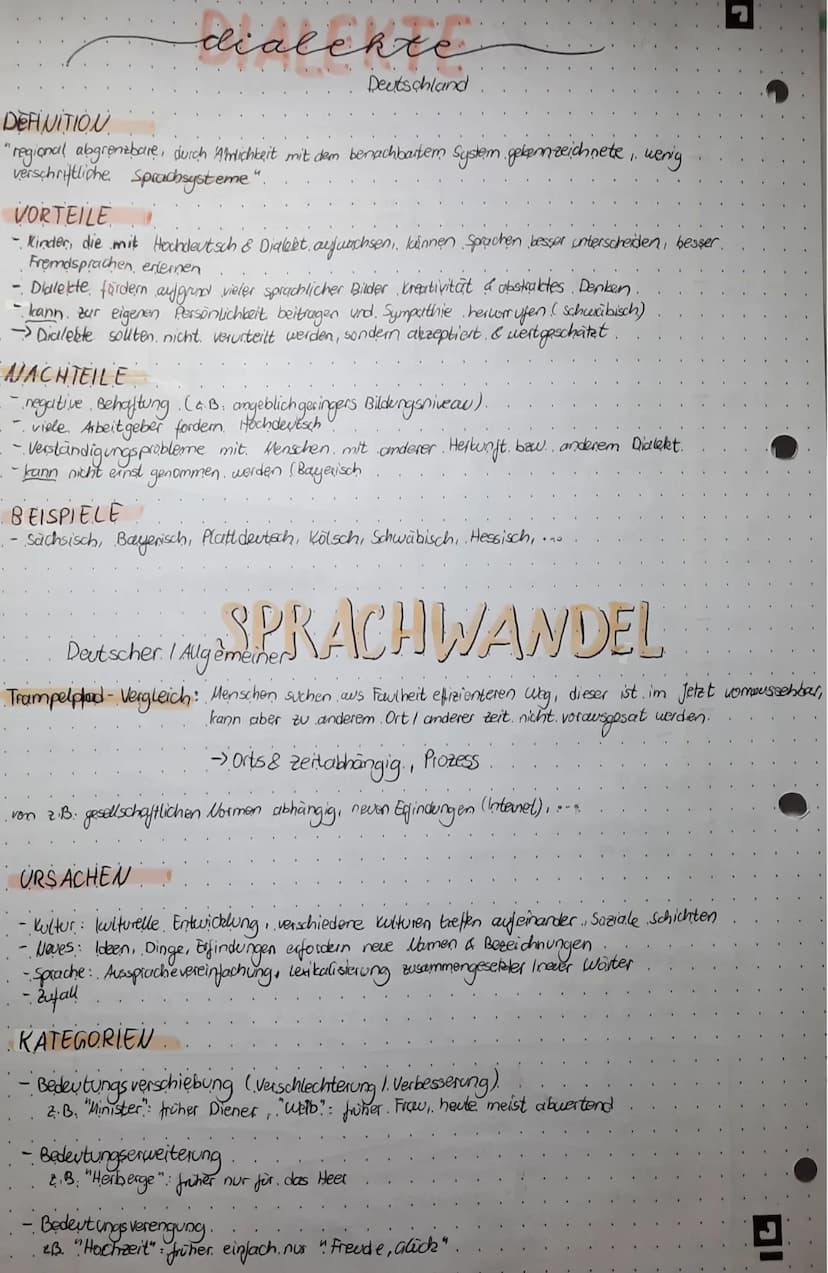 DIALEKTE
dialekte
Deutschland
DEFINITION
"regional abgrenzbare, durch Ähnlichkeit mit dem benachbartem System gekennzeichnete, wenig
verschriftliche Sprachsysteme".
VORTEILE
- Kinder, die mit Hochdeutsch & Dialekt aufwachsen, können Sprachen besser unterscheiden, besser
Fremdsprachen erlernen
- Dialekte fördern aufgrund vieler sprachlicher Bilder Kreativität & abstraktes Denken.
- kann zur eigenen Persönlichkeit beitragen und Sympathie hervorrufen (schwäbisch)
→ Dialekte sollten nicht verurteilt werden, sondern akzeptiert & wertgeschätzt.
NACHTEILE
- negative Behaftung (z.B. angeblich geringers Bildungsniveau)
- viele Arbeitgeber fordern Hochdeutsch
- Verständigungsprobleme mit Menschen mit anderer Herkunft bzw. anderem Dialekt.
- kann nicht ernst genommen werden (Bayerisch
BEISPIELE
- Sächsisch, Bayerisch, Plattdeutsch, Kölsch, Schwäbisch, Hessisch, ...
SPRACHWANDEL
Deutscher / Allgemeiner
Trampelpfad-Vergleich: Menschen suchen aus Faulheit effizienteren Weg, dieser ist im Jetzt vorraussehbar,
kann aber zu anderem Ort / anderer Zeit nicht vorausgesagt werden.
→ Orts & zeitabhängig, Prozess
von z.B. gesellschaftlichen Normen abhängig, neuen Erfindungen (Internet), ...
URSACHEN
- Kultur: kulturelle Entwicklung, verschiedene Kulturen treffen aufeinander, Soziale Schichten
- Neues: Ideen, Dinge, Erfindungen erfordern neue Namen & Bezeichnungen
- Sprache: Aussprachevereinfachung, Lexikalisierung zusammengesetzter / neuer Wörter
- Zufall
KATEGORIEN
- Bedeutungsverschiebung (Verschlechterung / Verbesserung)
z.B. "Minister": früher Diener, "Weib": früher Frau, heute meist abwertend
- Bedeutungserweiterung
z.B. "Herberge": früher nur für das Heer
- Bedeutungsverengung
zB. "Hochzeit": früher einfach nur "Freude, Glück".